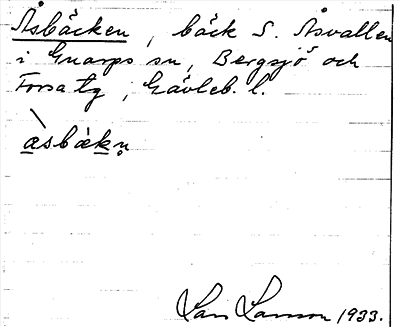 Åsbäcken, bäck S. Åsvallen
i Gnarps sn, Bergsjö och
Forsa tg, Gävleb. l.
àsbäkn̥
Lars Larsson 1933.